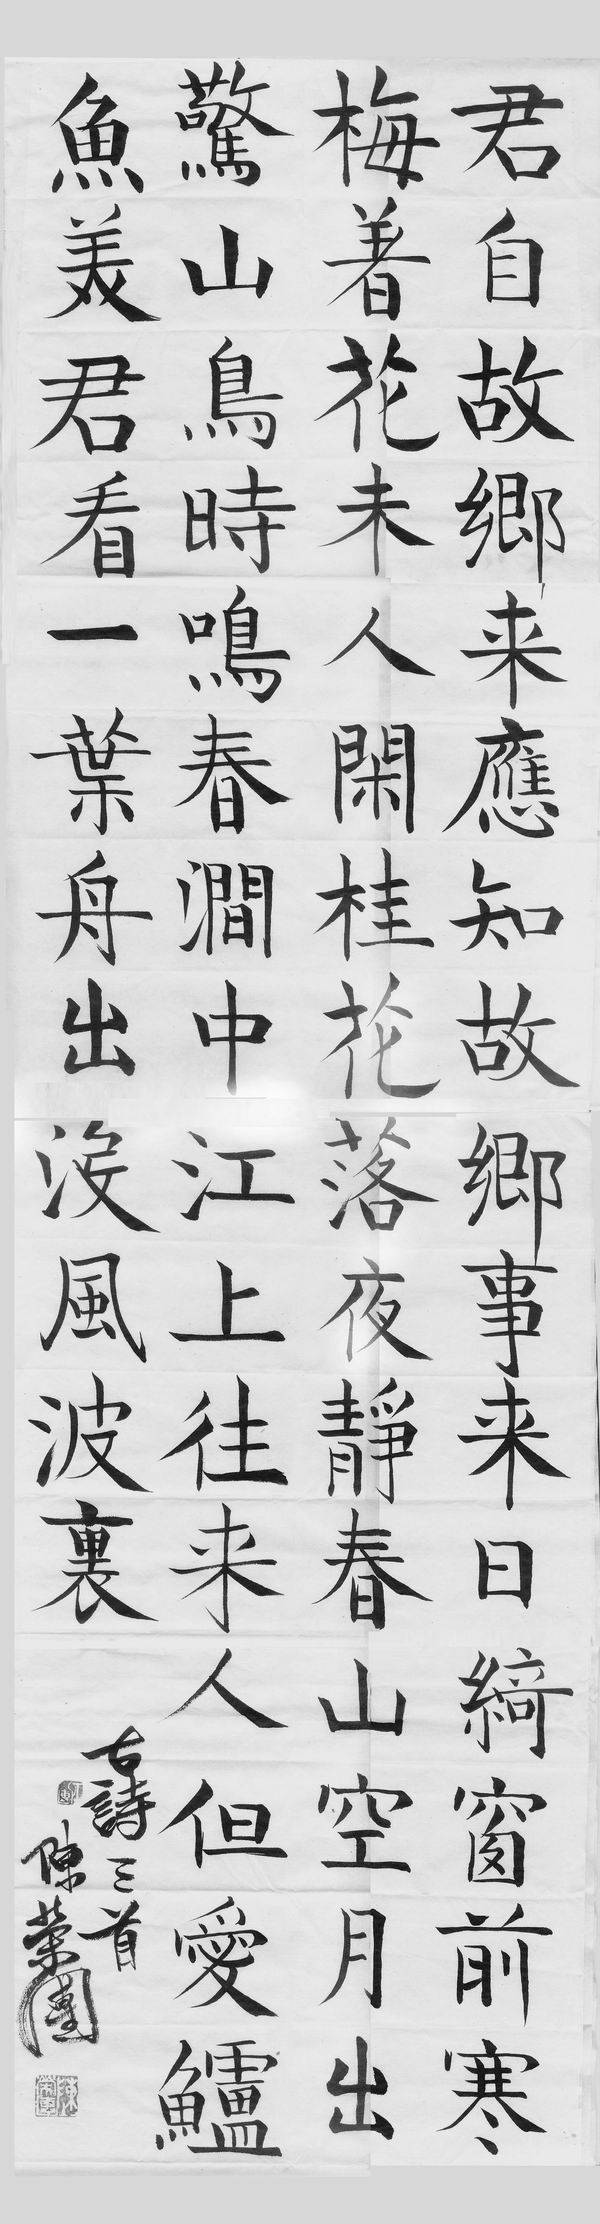 君自故鄉来應知故鄉事来日綺窗前寒
梅著花未人閑桂花落夜靜春山空月出
驚山鳥時鳴春澗中江上往来人但愛鱸
魚美君看一葉舟出沒風波裏
古詩三首
陳榮團